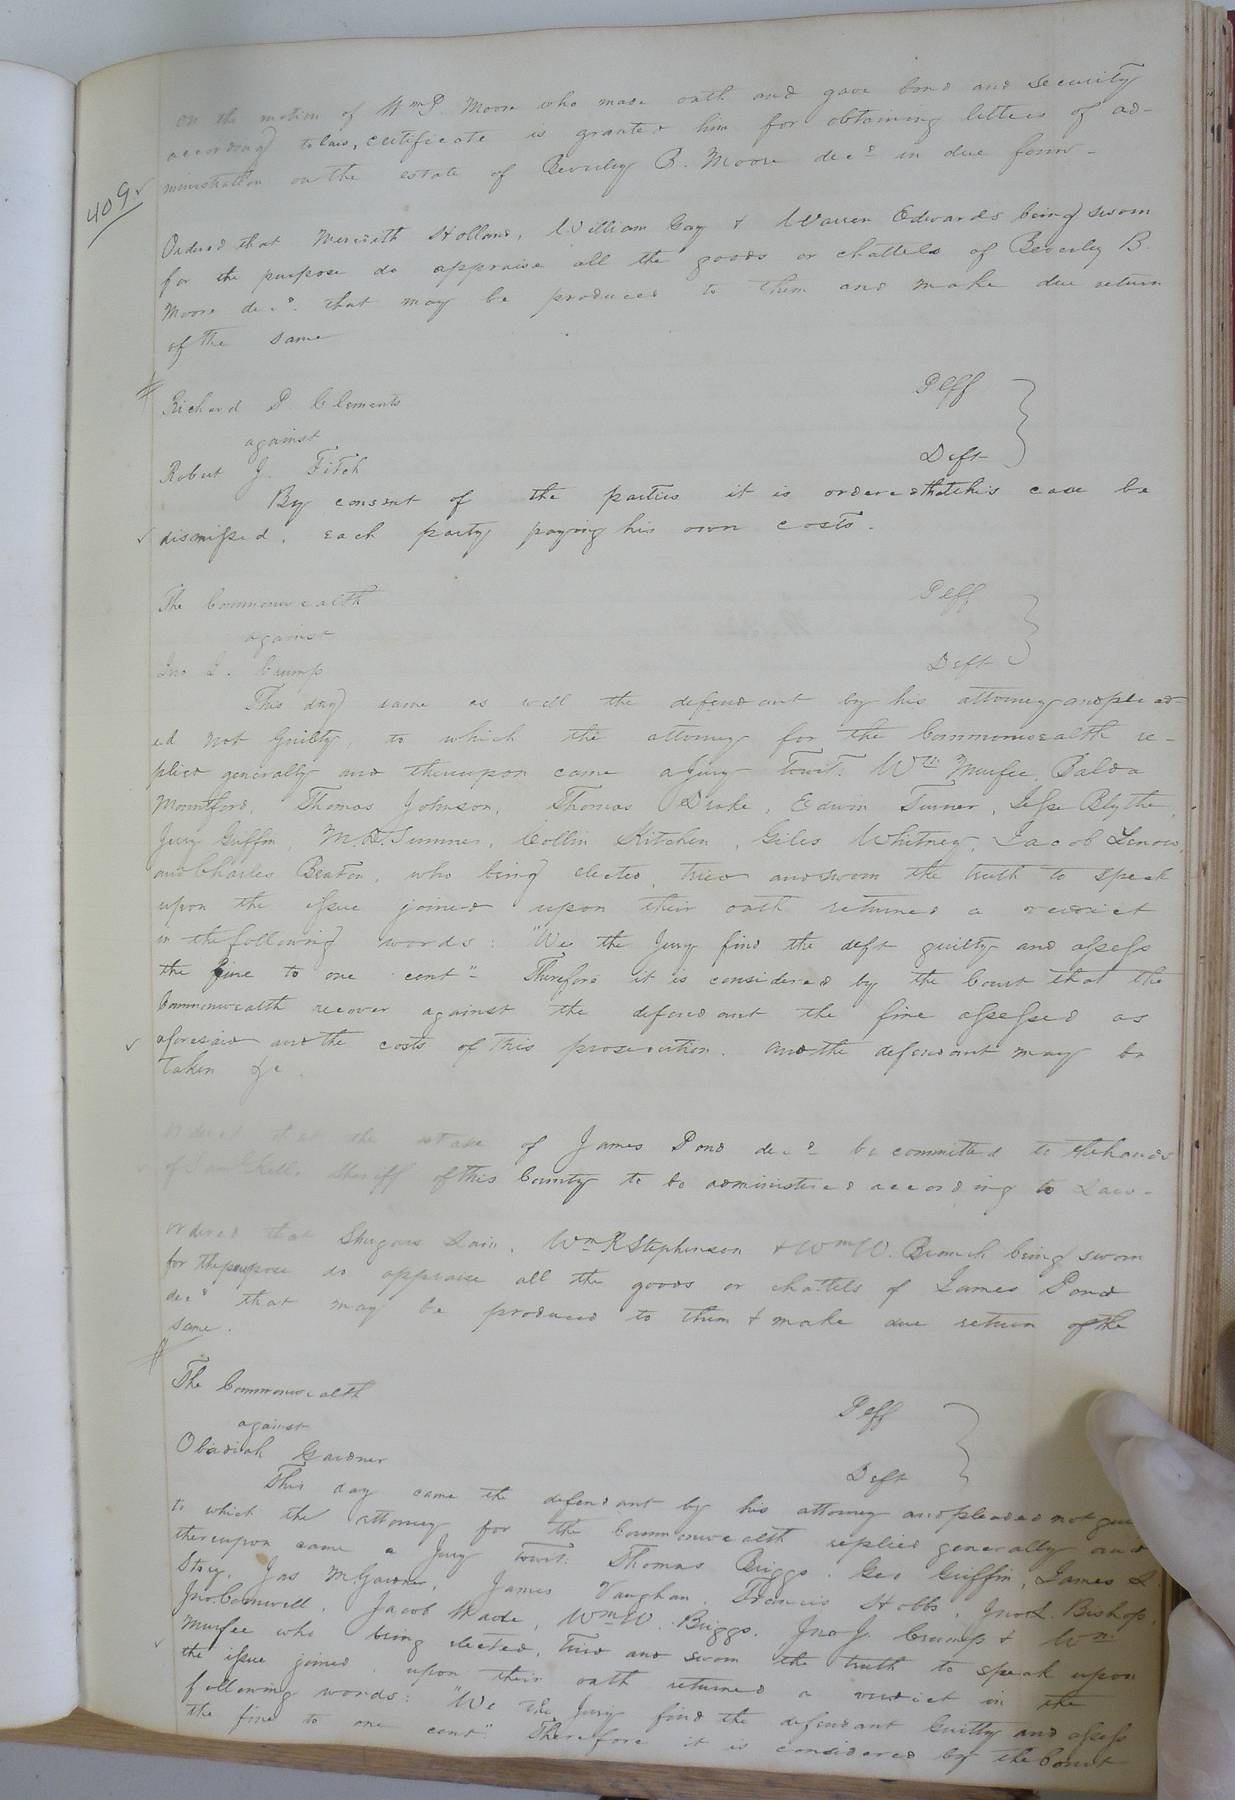 on the motion of Wm P. Moore who made oath and gave bond and security
according to law, certificate is granted him for obtaining letters of ad-
ministration on the estate of Beverley B. Moore decd in due form-
409
Ordered that Meredith Holland, William Gay & Warren Edwards being sworn
for the purpose do appraise all the goods or chattels of Beverly B.
Moore decd. that may be produced to them and make due return
of the same
Richard P Clements Plff
against
Robert J. Fitch Deft
By consent of the parties it is ordered that this case be
dismissed, each party paying his own costs.
The Commonwealth Plff
against
Jno J. Crump Deft
This day came as well the defendant by his attorney and plead-
ed Not Guilty, to which the attorney for the Commonwealth re-
plied generally and thereupon came a Jury towit: Wm Murfee,
Mountford, Thomas Johnson, Thomas Drake, Edwin Turner, Jesse Blythe,
Jerry Griffin, Sumner, Collin Kitchen, Giles Whitney, Jacob Lenow,
and Charles Beaton, who being elected, tried and sworn the truth to speak
upon the issue joined upon their oath returned a verdict
in the following words: "We the Jury find the deft guilty and assess
the fine to one cent" Therefore it is considered by the Court that the
Commonwealth recover against the defendant the fine assessed as
aforesaid and the costs of this prosecution. and the defendant may be
taken &c.
Ordered that the estate of James Pond decd be committed to the hands
of Sheriff of this County to be administered according to Law-
Ordered that Lain, Wm R Stephenson & Wm W. Branch being sworn
for the purpose do appraise all the goods or chattels of James Pond
decd that may be produced to them & make due return of the
same.
The Commonwealth Plff
against
Obadiah Gardner Deft
This day came the defendant by his attorney and pleaded not
to which the attorney for the Commonwealth replied generally and
thereupon came a Jury towit: Thomas Briggs, Geo Griffin, James L
Story, Jas M. Gardner, James Vaughan, Francis Hobbs, Jno L. Bishop,
Jno. Cornwell, Jacob Wade, Wm W. Briggs, Jno J. Crump & Wm
Murfee who being elected, tried and sworn the truth to speak upon
the issue joined, upon their oath returned a verdict in the
following words: "We the Jury find the defendant Guilty and assess
the fine to one cent" Therefore it is considered by the Court